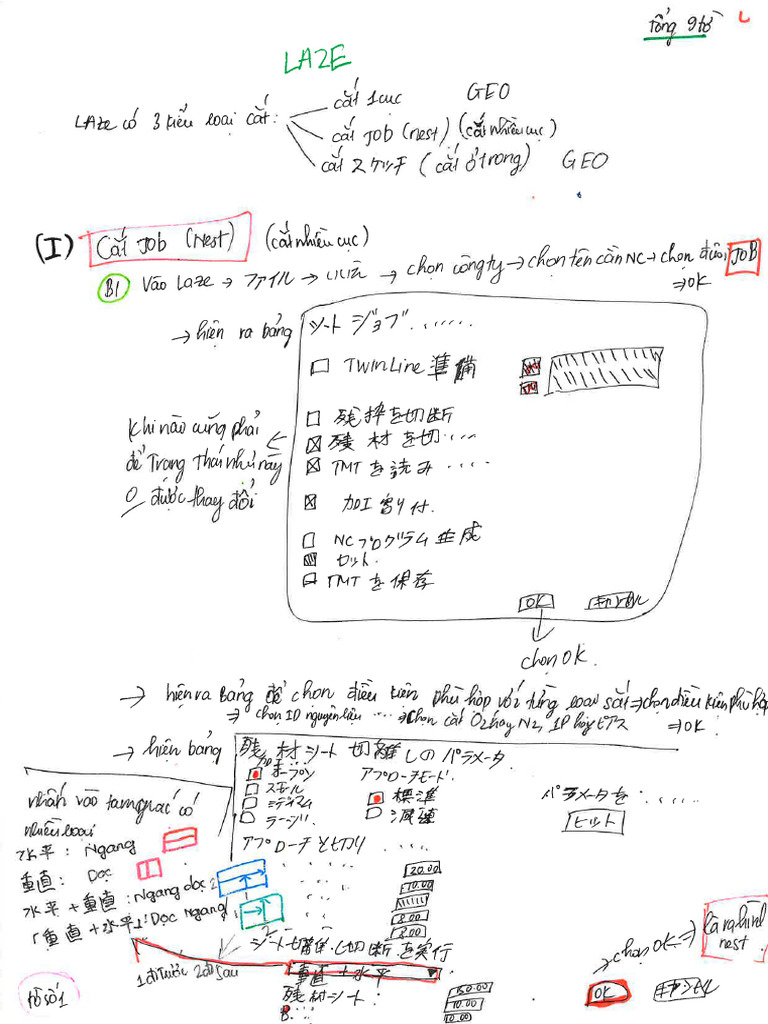 tổng 9 tờ
LAZE
LAze có 3 kiểu loại cắt:
cắt 1 cục GEO
cắt JOB (nest) (cắt nhiều cục)
cắt スケッチ (cắt ở trong) GEO
(I) Cắt JOB (Nest) (cắt nhiều cục)
B1 Vào Laze → ファイル → → chọn công ty → chọn tên cần NC → chọn đuôi JOB
⇒ OK
→ hiện ra bảng シートジョブ.......
TwinLine 準備
残枠を切断
残材を切....
TMT を読み ....
加工割り付
NCプログラム生成
セット
TMT を保存
OK キャンセル
Khi nào cũng phải
để Trạng thái như này
0 được thay đổi
chọn OK.
→ hiện ra Bảng để chọn điều kiện phù hợp với từng loại sắt ⇒ chọn điều kiện phù hợp
⇒ chọn ID nguyên liệu ..... ⇒ chọn cắt O2 hay N2, 1P hay ピアス ⇒ OK
→ hiện bảng 残材シート切離しのパラメータ
オープン アプローチモード.
スモール 標準 パラメータを.....
ミディアム 減速 セット
ラージ
アプローチと切り
20.00
10.00
8.00
8.00
nhấn vào tam giác có
nhiều loại
水平: Ngang
垂直: Dọc
水平+垂直: Ngang dọc
「垂直+水平」: Dọc Ngang
1 đi trước 2 đi sau
シート切離し切断を実行
垂直+水平
残材シート:
50.00
10.00
10.00
→ chọn OK ⇒ là ra hình
nest
OK キャンセル
tờ số 1